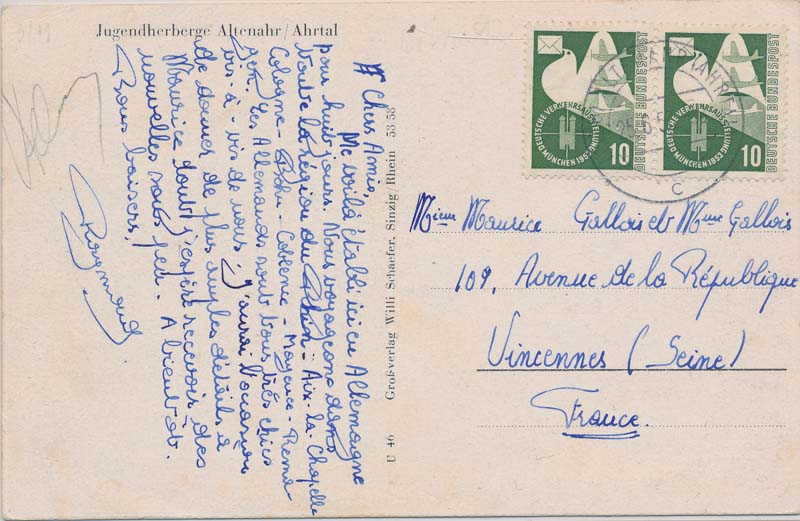 Jugendherberge Altenahr/Ahrtal
Chers Amis,
Me voilà établi ici en Allemagne
pour huit jours. Nous voyageons dans
toute la région du Rhin: Aix-la-Chapelle
Cologne - Bohn - Coblence - Mayence - Rema-
gen. Les Allemands sont tous très chics
vis-à-vis de nous. J'aurai l'occasion
de donner de plus amples détails à
Maurice dont j'espère recevoir des
nouvelles sous peu. A bientôt.
Bons baisers.
Raymond
U 46 Großverlag Willi Schaefer, Sinzig/Rhein 53 53
DEUTSCHE VERKEHRSAUSSTELLUNG
MÜNCHEN 1953
10
DEUTSCHE BUNDESPOST
DEUTSCHE VERKEHRSAUSSTELLUNG
MÜNCHEN 1953
10
DEUTSCHE BUNDESPOST
c
Mr Maurice Gallois et Mme Gallois
109, Avenue de la République
Vincennes (Seine)
France.